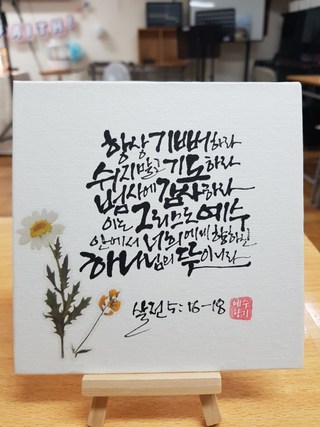 항상 기뻐하라
쉬지말고 기도하라
범사에 감사하라
이는 그리스도 예수
안에서 너희에게 향하신
하나님의 뜻이니라
살전 5:16-18
예수
향기